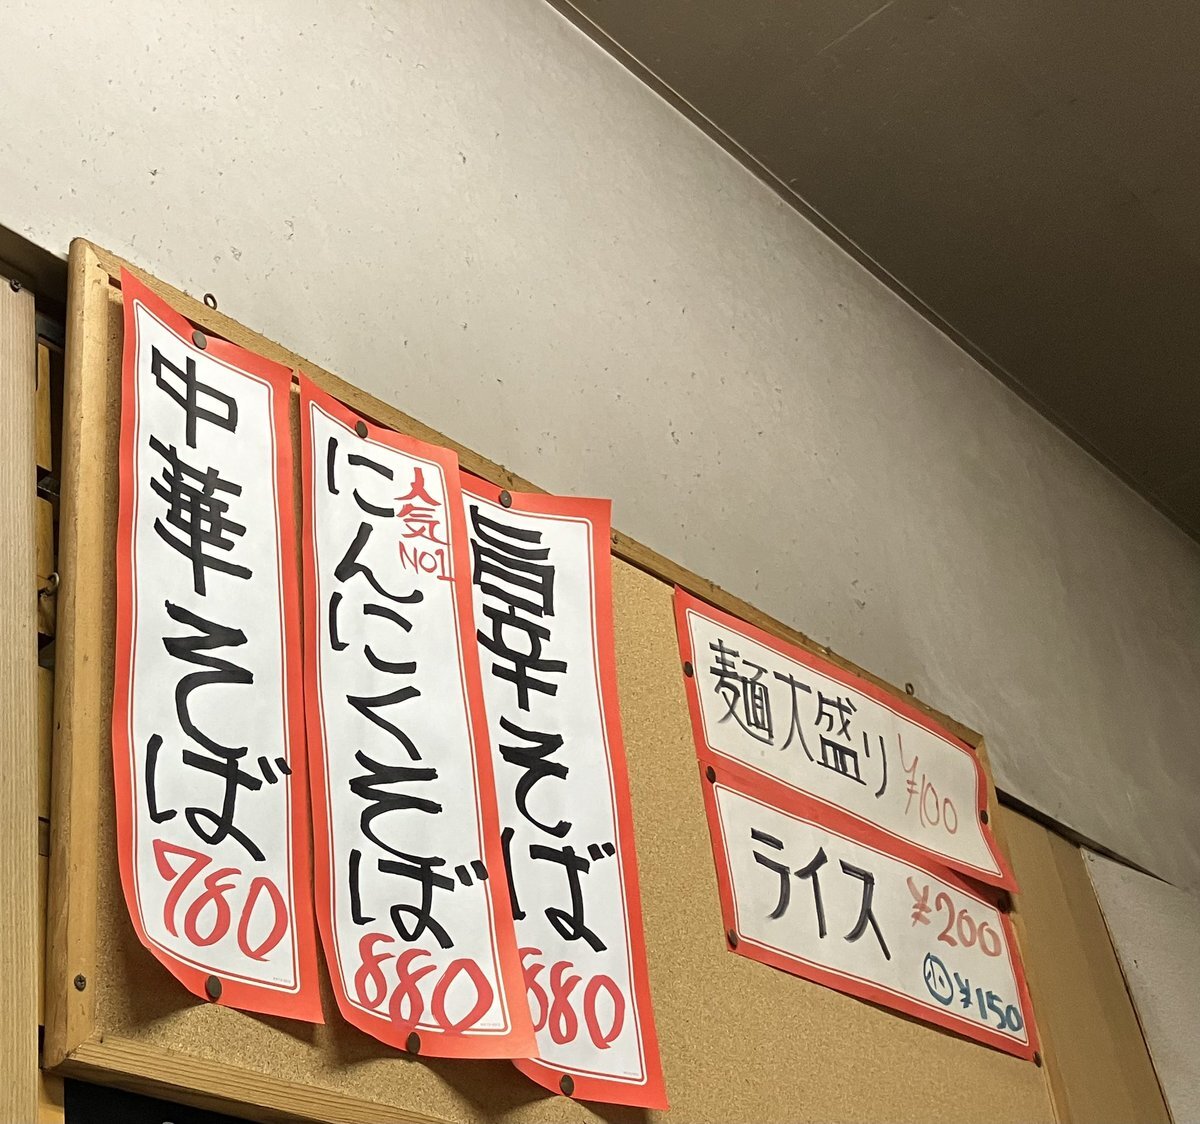 中華そば
780
にんにくそば
人気
NO1
880
そば
880
麺大盛り ¥100
ライス ¥200
小 ¥150